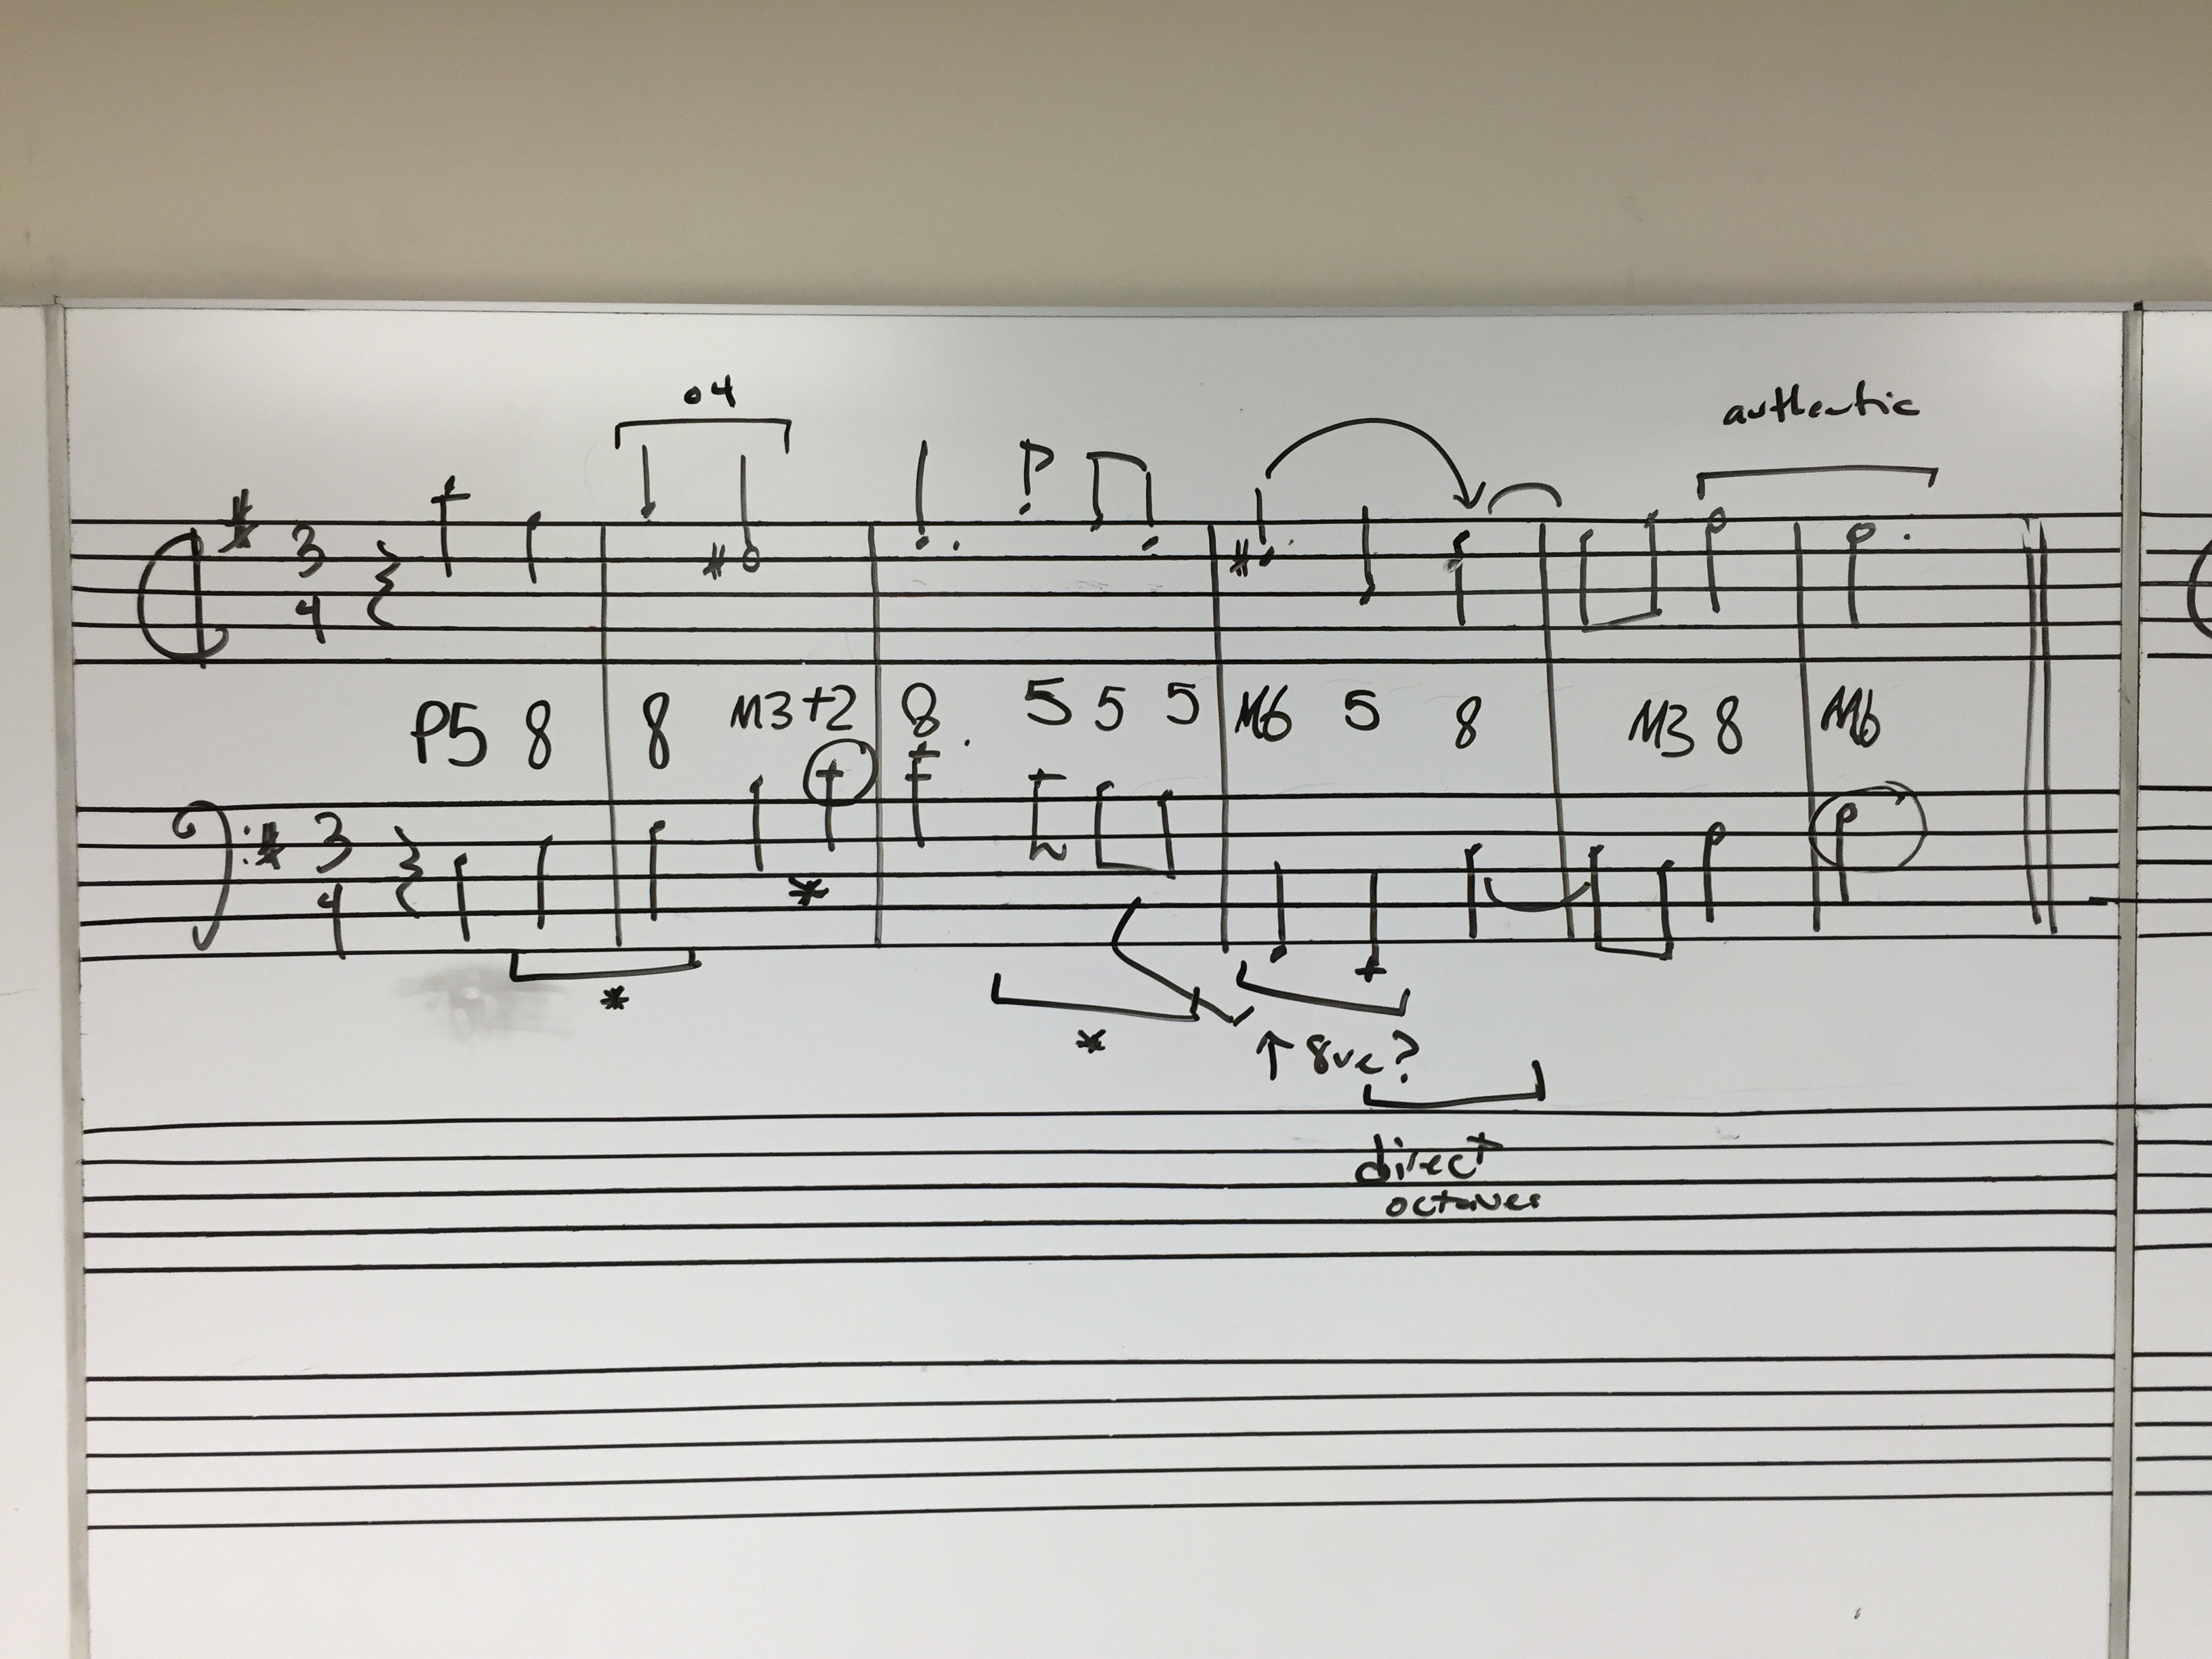 o4
authentic
3
4
P5 8 8 M3 +2 8 5 5 5 M6 5 8 M3 8 M6
3
4
*
*
*
↑ 8ve?
direct
octaves